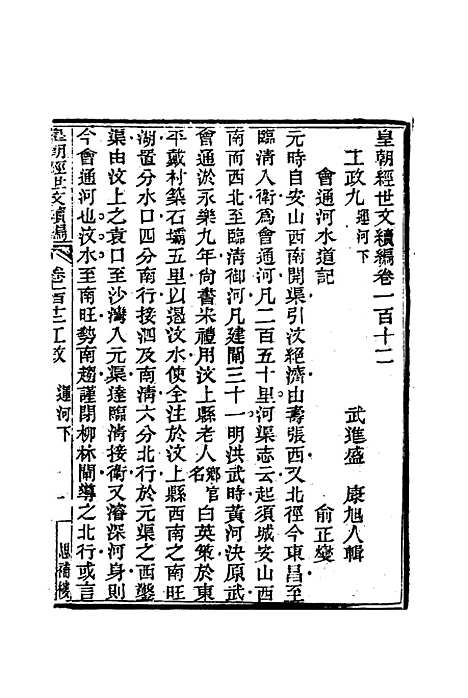 皇朝經世文續編卷一百十二
武進盛 康旭人輯
工政九運河下
會通河水道記
俞正燮
元時自安山西南開渠引汶絕濟由壽張西又北徑今東昌至
臨清入衛為會通河凡二百五十里河渠志云起須城安山西
南而西北至臨清御河凡建閘三十一明洪武時黃河決原武
會通淤永樂九年尚書宋禮用汶上縣老人鄉官名白英策於東
平戴村築石壩五里以遏汶水使全注於汶上縣西南之南旺
湖置分水口四分南行接泗及南清六分北行於元渠之西鑿
渠由汶上之袁口至沙灣入元渠達臨清接衛又濬深河身則
今會通河也汶水至南旺勢南趨謹閉柳林閘導之北行或言
皇朝經世文續編 卷一百十二工政 運河下 一 思補樓